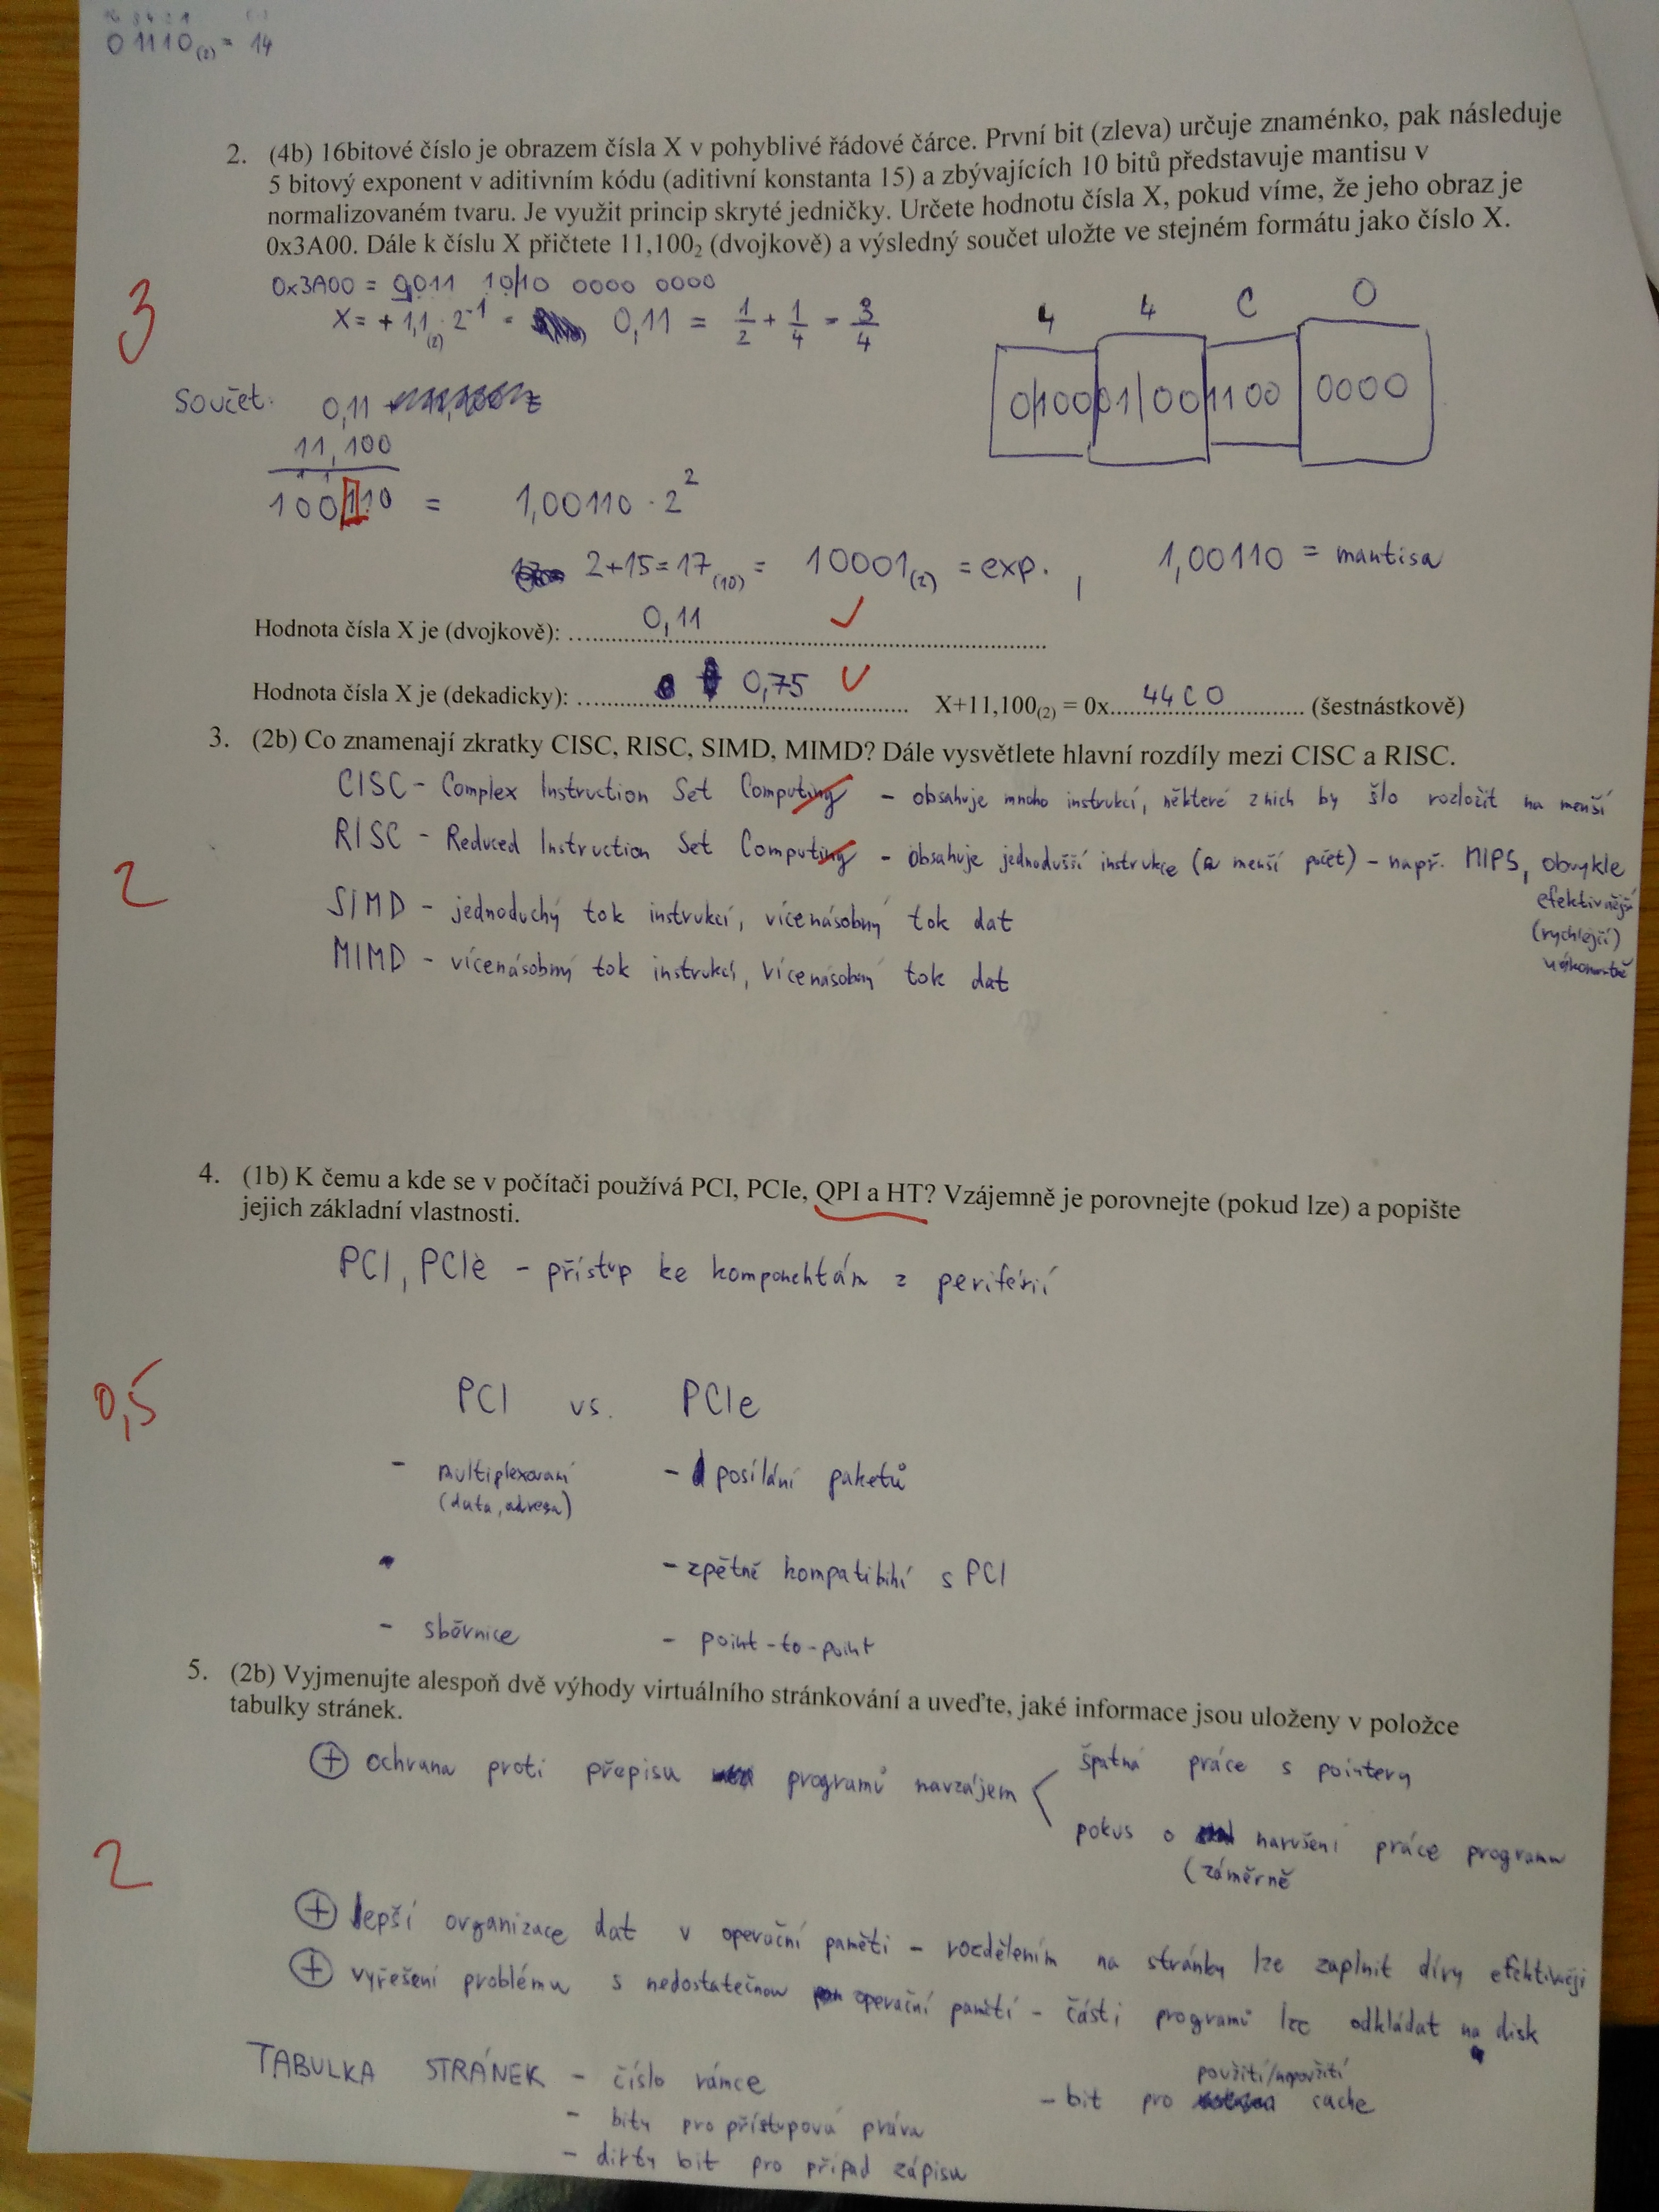 01110(2) = 14
2. (4b) 16bitové číslo je obrazem čísla X v pohyblivé řádové čárce. První bit (zleva) určuje znaménko, pak následuje
5 bitový exponent v aditivním kódu (aditivní konstanta 15) a zbývajících 10 bitů představuje mantisu v
normalizovaném tvaru. Je využit princip skryté jedničky. Určete hodnotu čísla X, pokud víme, že jeho obraz je
0x3A00. Dále k číslu X přičtete 11,100₂ (dvojkově) a výsledný součet uložte ve stejném formátu jako číslo X.
0x3A00 = 0011 10|10 0000 0000
3
X = + 1,1(2) · 2⁻¹ = 0,11 = 1/2 + 1/4 = 3/4
4 4 C 0
0|100 01|00 1100 0000
Součet: 0,11
11,100
100110 = 1,00110 · 2²
2+15=17(10) = 10001(2) = exp. , 1,00110 = mantisa
Hodnota čísla X je (dvojkově): 0,11
Hodnota čísla X je (dekadicky): 0,75 X+11,100(2) = 0x 44C0 (šestnástkově)
3. (2b) Co znamenají zkratky CISC, RISC, SIMD, MIMD? Dále vysvětlete hlavní rozdíly mezi CISC a RISC.
CISC - Complex Instruction Set Computing - obsahuje mnoho instrukcí, některé z nich by šlo rozložit na menší
RISC - Reduced Instruction Set Computing - obsahuje jednodušší instrukce (a menší počet) - např. MIPS, obvykle
efektivnější
(rychlejší)
2
SIMD - jednoduchý tok instrukcí, vícenásobný tok dat
MIMD - vícenásobný tok instrukcí, vícenásobný tok dat
4. (1b) K čemu a kde se v počítači používá PCI, PCIe, QPI a HT? Vzájemně je porovnejte (pokud lze) a popište
jejich základní vlastnosti.
PCI, PCIe - přístup ke komponentám z periférií
0,5
PCI vs. PCIe
- multiplexovaní - posílání paketů
(data, adresa)
- zpětně kompatibilní s PCI
- sběrnice - point-to-point
5. (2b) Vyjmenujte alespoň dvě výhody virtuálního stránkování a uveďte, jaké informace jsou uloženy v položce
tabulky stránek.
⊕ ochrana proti přepisu programů navzájem < špatná práce s pointery
pokus o narušení práce programu
(záměrně
2
⊕ lepší organizace dat v operační paměti - rozdělením na stránky lze zaplnit díry efektivněji
⊕ vyřešení problému s nedostatečnou operační pamětí - části programů lze odkládat na disk
TABULKA STRÁNEK - číslo rámce
- bity pro přístupová práva
- dirty bit pro případ zápisu
- bit pro použití/nepoužití cache